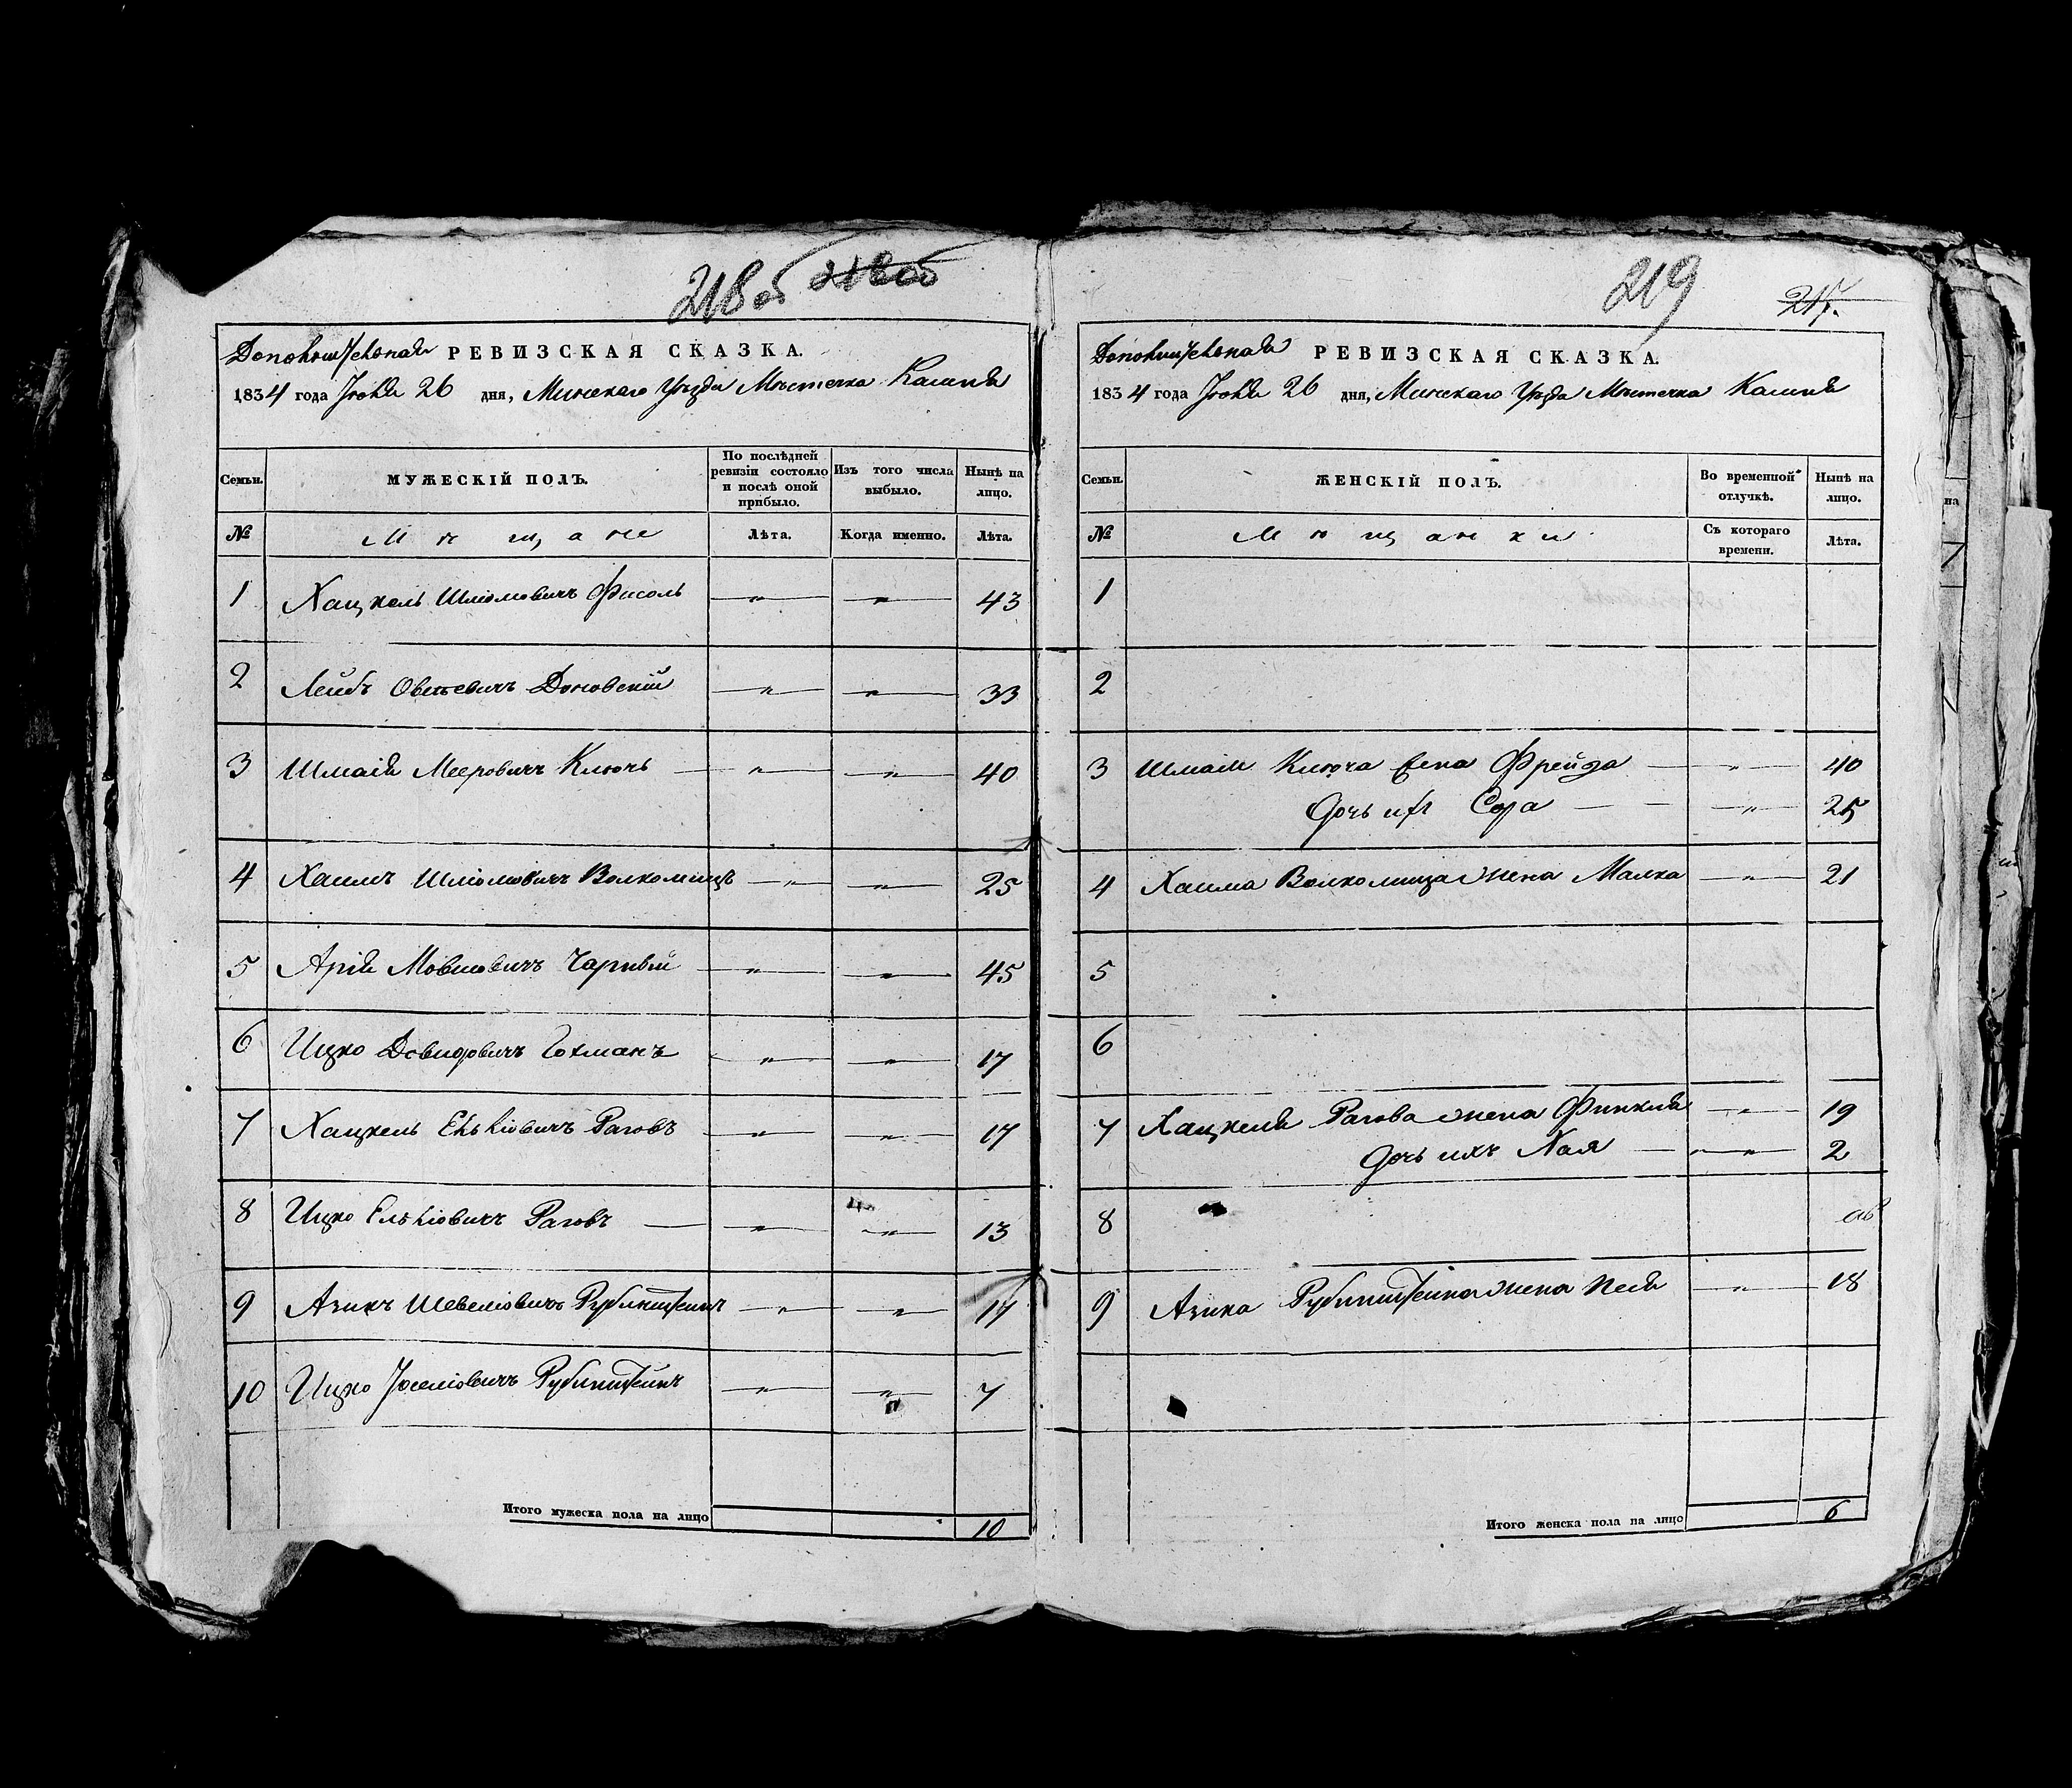 218 об 218 об
Дополнительная РЕВИЗСКАЯ СКАЗКА.
1834 года Іюля 26 дня, Минскаго Уѣзда Мѣстечка Камня
Семьи. МУЖЕСКІЙ ПОЛЪ. По послѣдней ревизіи состояло и послѣ оной прибыло. Изъ того числа выбыло. Нынѣ на лицо.
№ Мѣщане Лѣта. Когда именно. Лѣта.
1 Хацкель Шліомовичъ Фисоль — „ — — „ — 43
2 Лейбъ Овсѣевичъ Доновскій — „ — — „ — 33
3 Шмаія Мееровичъ Ключъ — „ — — „ — 40
4 Хаимъ Шліомовичъ Волколицъ — „ — — „ — 25
5 Арія Мовшовичъ Чарный — „ — — „ — 45
6 Ицко Довидовичъ Гохманъ — „ — — „ — 17
7 Хацкель Елькіовичъ Раговъ — „ — — „ — 17
8 Ицко Елькіовичъ Раговъ — „ — — „ — 13
9 Азикъ Шевеліовичъ Рубинштейнъ — „ — — „ — 17
10 Ицко Іоселіовичъ Рубинштейнъ — „ — — „ — 7
Итого мужеска пола на лицо 10
219 215.
Дополнительная РЕВИЗСКАЯ СКАЗКА.
1834 года Іюля 26 дня, Минскаго Уѣзда Мѣстечка Камня
Семьи. ЖЕНСКІЙ ПОЛЪ. Во временной отлучкѣ. Нынѣ на лицо.
№ Мѣщанки Съ котораго времени. Лѣта.
1
2
3 Шмаіи Ключа жена Фрейда — „ — 40
дочь ихъ Сора — „ — 25
4 Хаима Волколица жена Малка — „ — 21
5
6
7 Хацкеля Рагова жена Финкля — „ — 19
дочь ихъ Хая — „ — 2
8
9 Азика Рубинштейна жена Песя — „ — 18
Итого женска пола на лицо 6